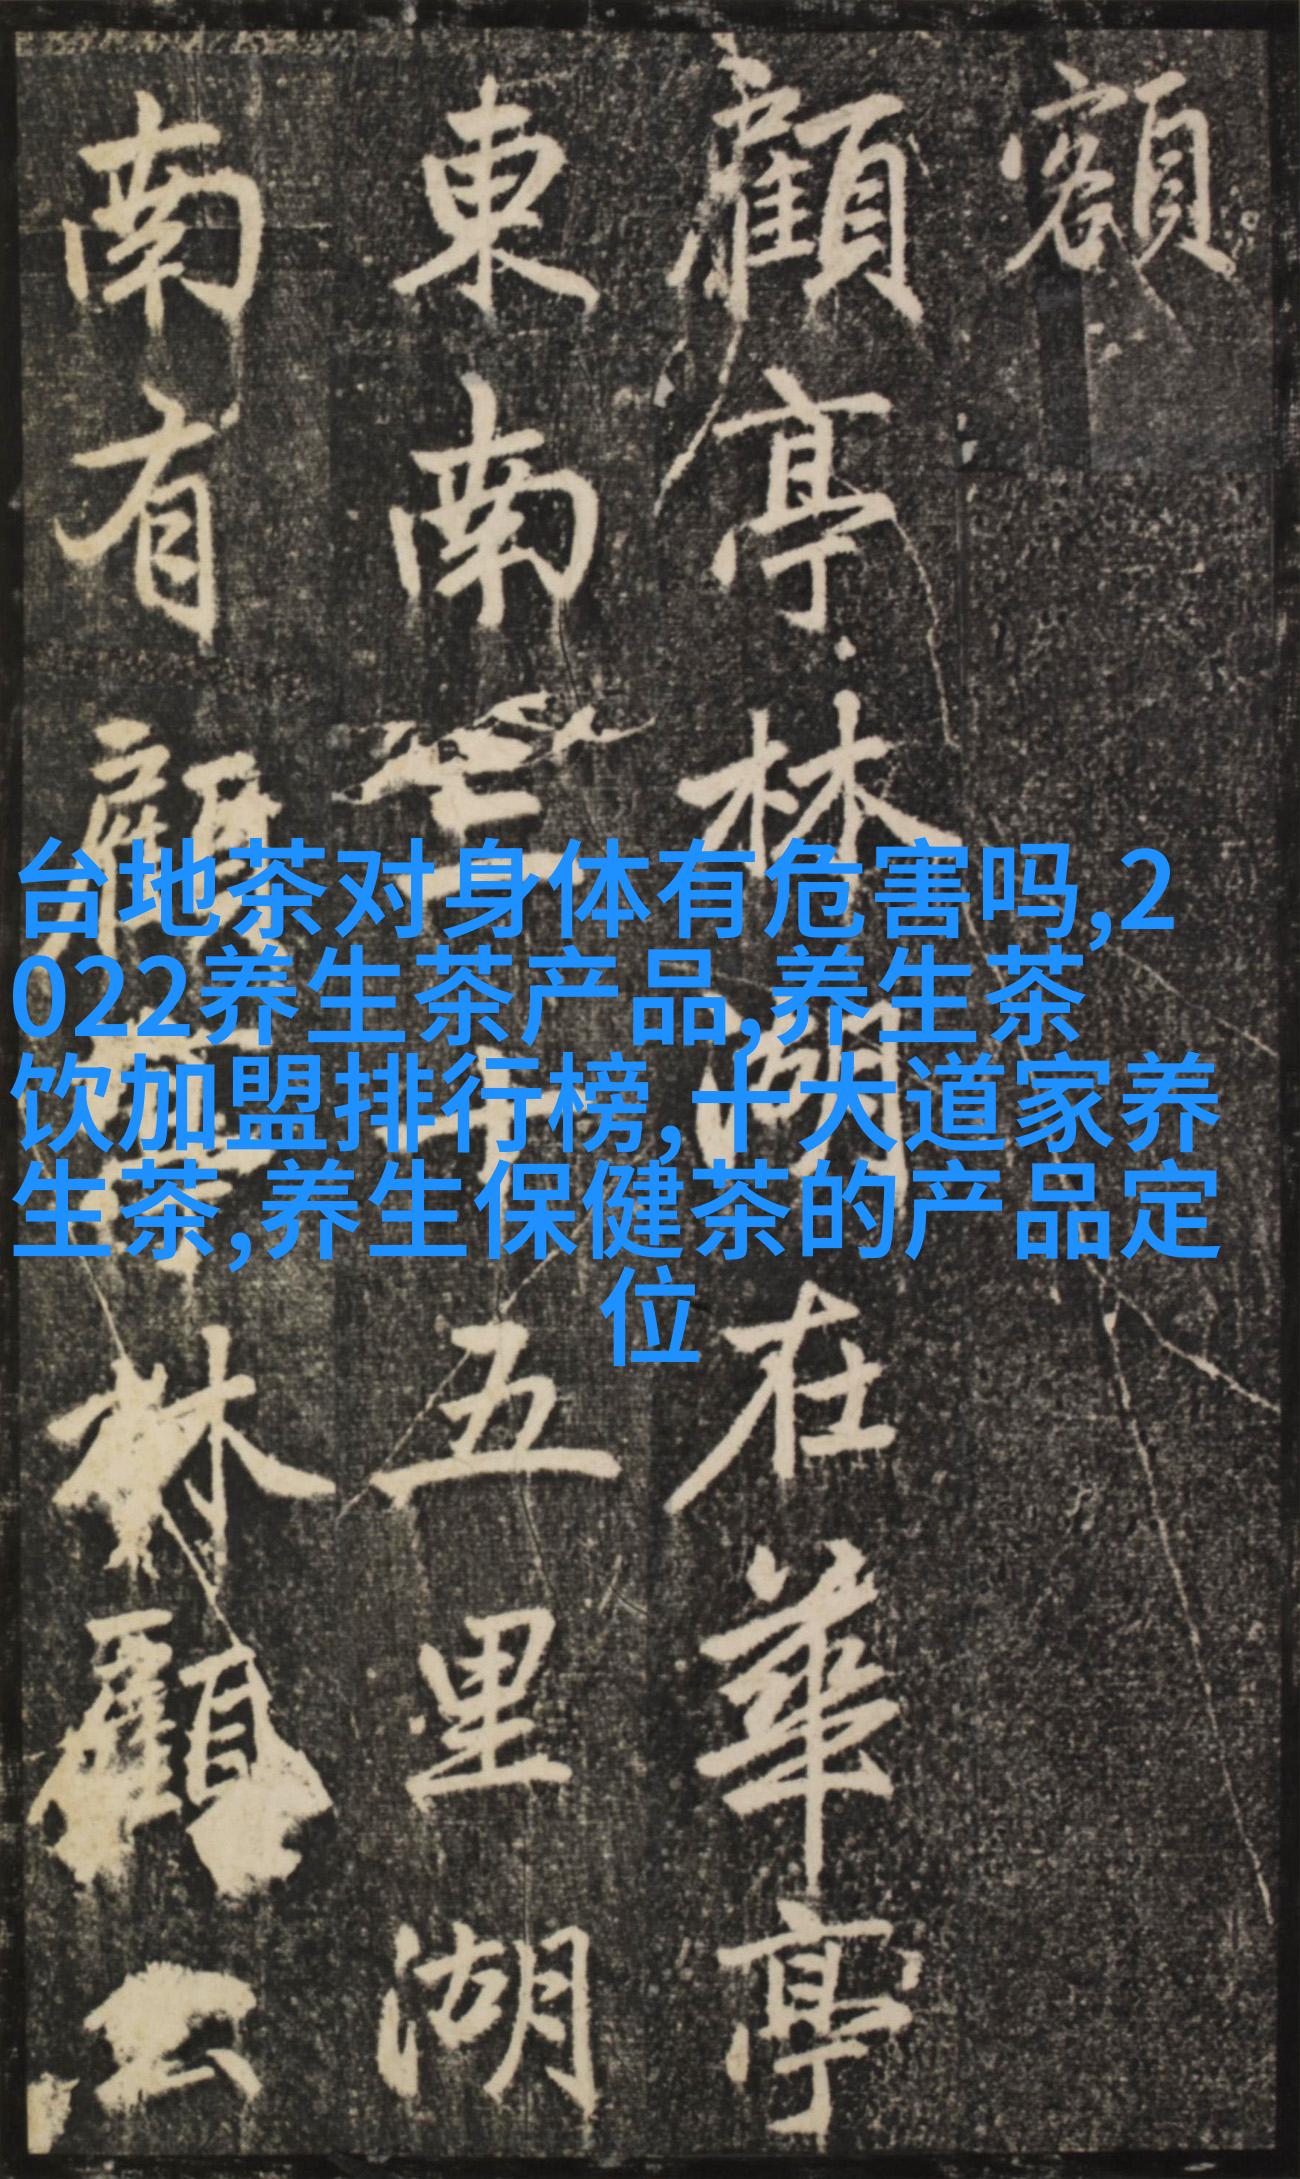 額
顧亭林湖在華亭
東南三十五里湖
南有顧亭林顧公
台地茶对身体有危害吗,2
022养生茶产品,养生茶
饮加盟排行榜,十大道家养
生茶,养生保健茶的产品定
位